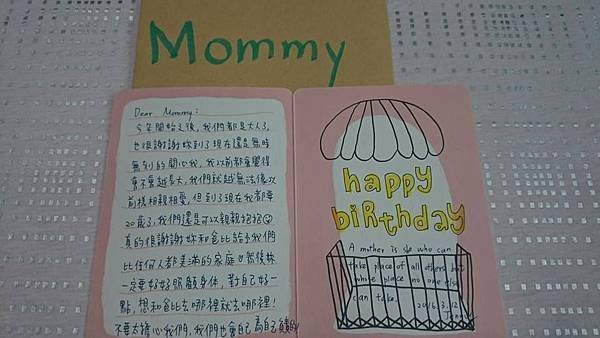 Mommy
Dear Mommy:
今年開始之後，我們都是大人了，
也很謝謝妳到了現在還是無時
無刻的關心我，我以前都會覺得
會不會越長大，我們就越無法像以
前樣相親相愛，但到了現在我都要
20歲了，我們還是可以親親抱抱☺
真的很謝謝妳和爸比給予我們
比任何人都美滿的家庭也
一定要好好照顧身体，對自己好一
點，想和爸比去哪裡就去哪裡！
不要太擔心我們，我們也會自己為自己負責的
happy
birthday
A mother is she who can
take place of all others but
whose place no one else
can take.
2016.3.12